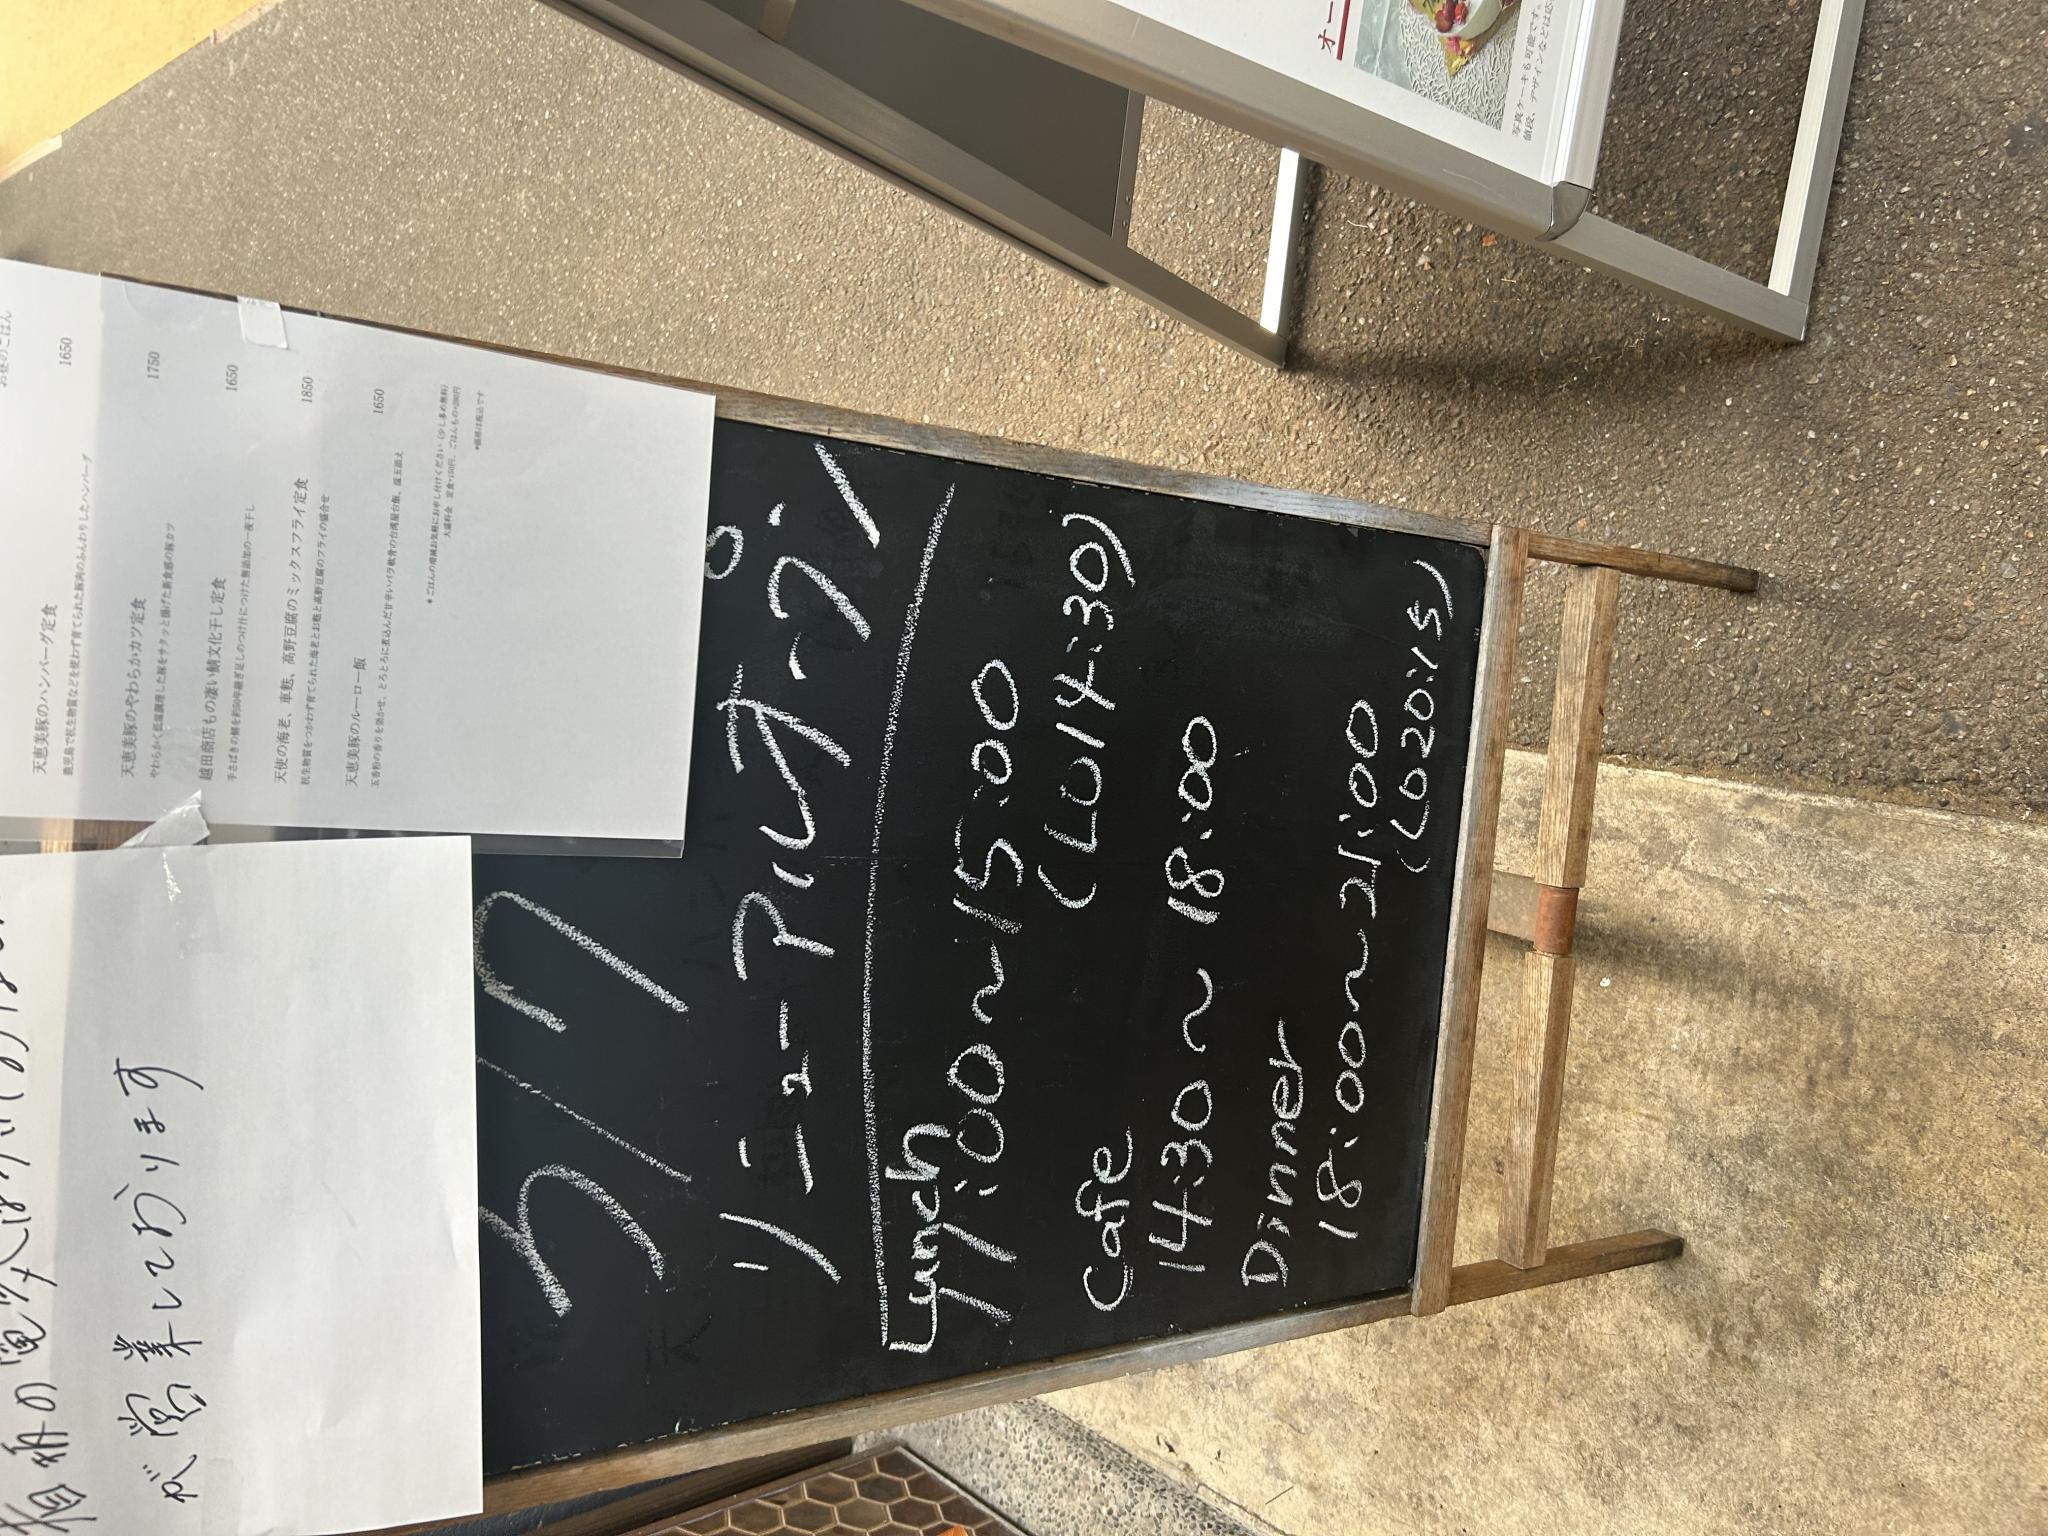 お昼のごはん
天恵美豚のハンバーグ定食 1650
鹿児島で抗生物質などを使わず育てられた豚肉のふんわりしたハンバーグ
天恵美豚のやわらかカツ定食 1750
やわらかく低温調理した豚をサクッと揚げた新食感の豚カツ
越田商店もの凄い鯖文化干し定食 1650
手さばきの鯖を約50年継ぎ足しのつけ汁につけた無添加の一夜干し
天使の海老、車麩、高野豆腐のミックスフライ定食 1850
抗生物質をつかわず育てられた海老とお麩と高野豆腐のフライの盛合せ
天恵美豚のルーロー飯 1650
五香粉の香りを効かせ、とろとろに煮込んだ甘辛いバラ軟骨の台湾屋台飯、温玉添え
*ごはんの増減お気軽にお申し付けください (少し多め無料)
大盛料金 定食+150円、ごはんもの+200円
*価格は税込です
看板の電気は
が、営業しております
3/17
リニューアルオープン
Lunch
11:00～15:00
(LO14:30)
Cafe
14:30～18:00
Dinner
18:00～21:00
(LO20:15)
オー
写真ケーキも可能です。
値段、デザインなどは応